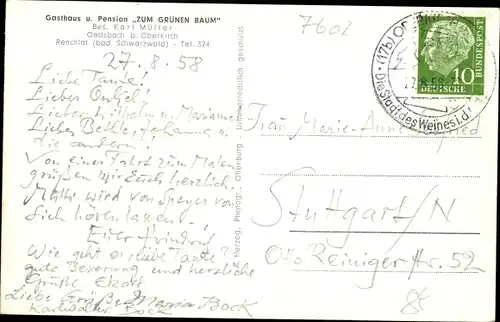 Gasthaus u. Pension „ZUM GRÜNEN BAUM"
Bes. Karl Müller
Gaisbach b. Oberkirch
Renchtal (bad. Schwarzwald) - Tel. 324
27.8.58
Liebe Tante!
Lieber Onkel!
Lieber Wilhelm u. Marianne
Liebes Bethle, Johanna u.
die andern!
Von einer Fahrt zum
grüßen wir Euch herzlich.
wird von Speyer von
sich hören lassen!
Euer
Wie geht es liebe Tante?
gute Besserung und herzliche
Grüße
Liebe Grüße Maria Bock
Karlwalter Bock
Herzog, Photogr., Offenburg
Unberechtigt geschützt
7602
(17b) O
27.8.58
Die Stadt des Weines i.d.
10
DEUTSCHE
BUNDESPOST
Frau Marie-Anne
Stuttgart/N
Otto Reiniger Str. 52
8€